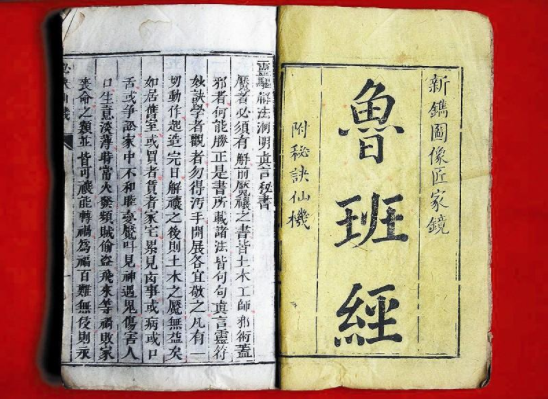 新鐫圖像匠家鏡
魯班經
附秘訣仙機
靈驅解法洞明真言秘書
魘者必須有解前魘禳之書皆土木工師邪術蓋
邪者何能勝正是書所載諸法皆句句真言靈符
妙訣學者觀者勿得污手開展各宜敬之凡有一
切動作起造完日解禳之後則土木之魘無益矣
如居舊室或買者賃者家宅累見凶事或病或口
舌或爭訟家中不和睡夢魘叫見神遇鬼傷害人
口生意淡薄時常火發頻賊偷盜飛來等禍敗家
喪命之類並皆可禳能轉禍為福百難無侵則永